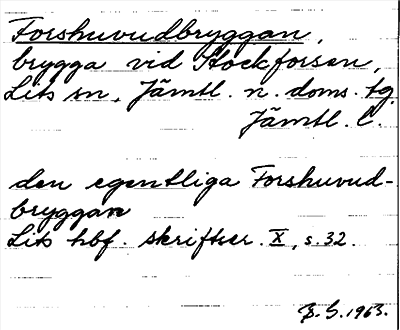 Forshuvudbryggan,
brygga vid Stockforsen,
Lits sn, Jämtl. n. doms. tg.
Jämtl. l.
den egentliga Forshuvud-
bryggan
Lits hbf. skrifter. X, s. 32.
B. S. 1963.